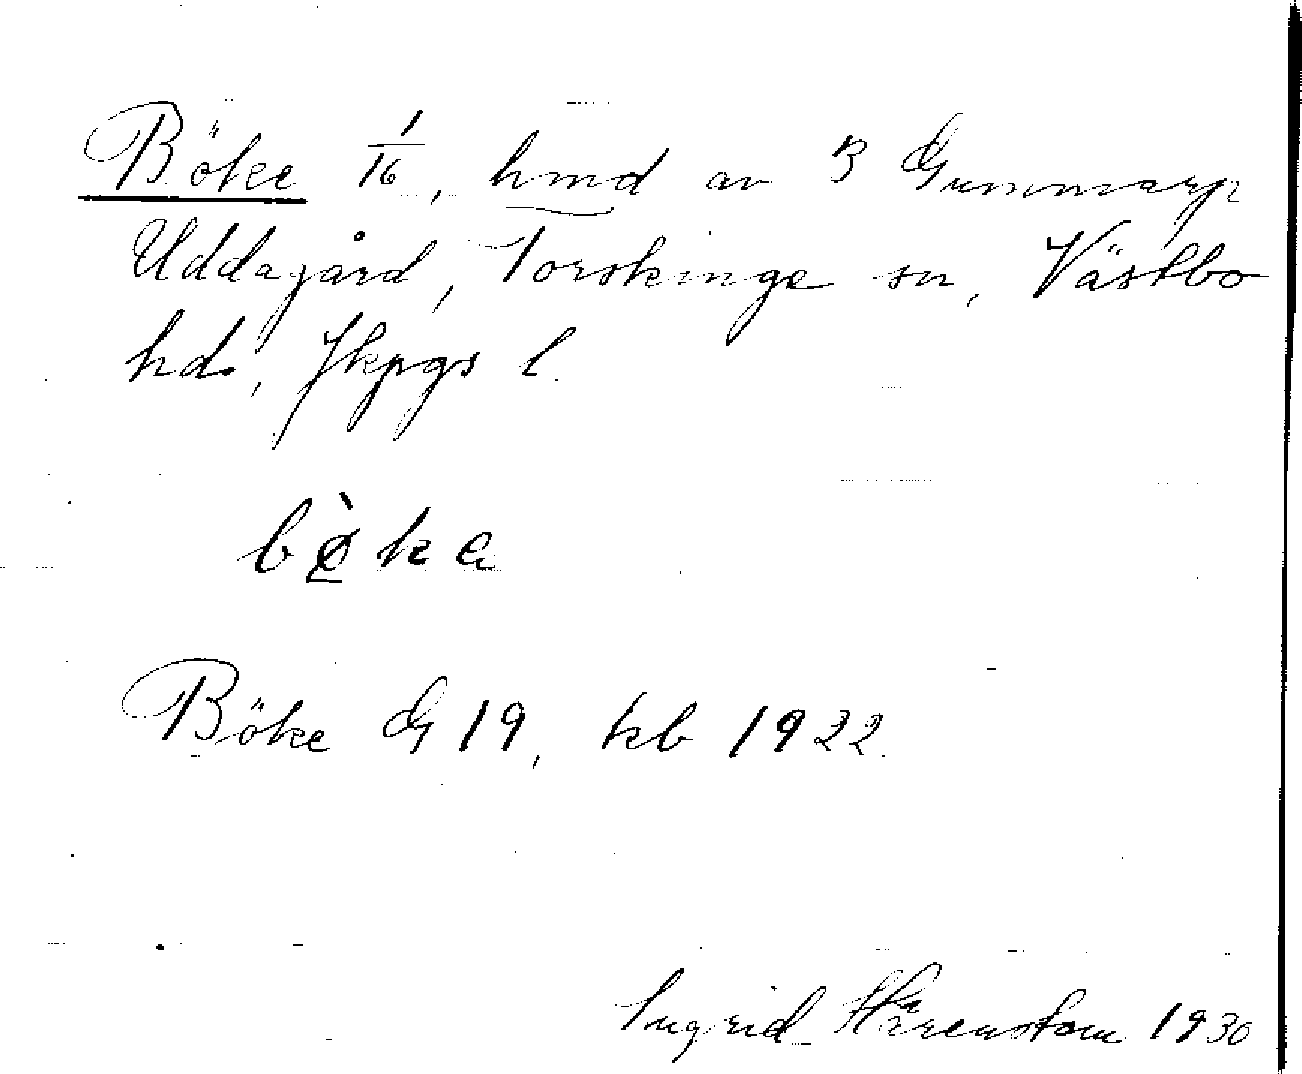 Böke 1/16, hmd av 3 Gummarp
Uddagård, Torskinge sn, Västbo
hd, Jkpgs l.
bø̀ka
Böke G 19, kb 1922.
Ingrid Härenstam 1930